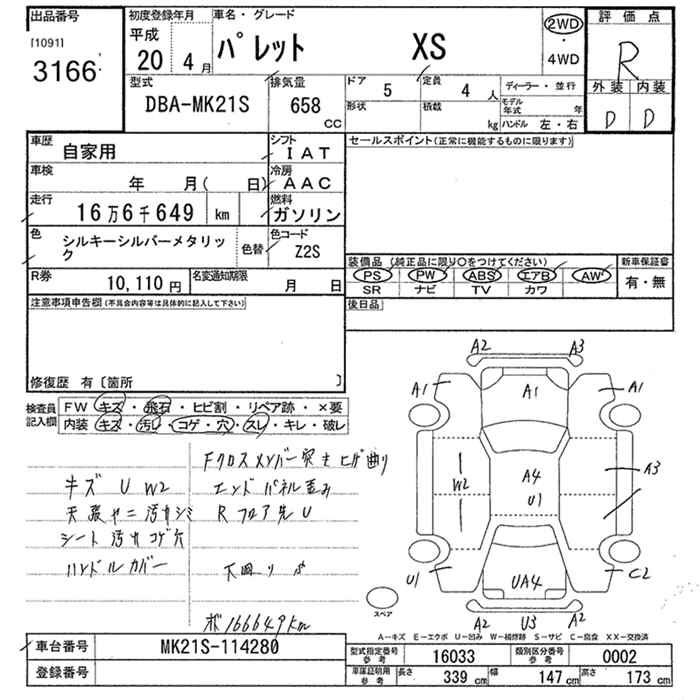 出品番号 初度登録年月 車名・グレード 評価点
[1091] 平成 2WD
3166 20 4月 パレット XS ・ R
4WD
型式 排気量 ドア 5 定員 4人 ディーラー・並行 外装 内装
DBA-MK21S 658 CC 形状 積載 kg モデル年式 年 D D
ハンドル 左・右
車歴 自家用 シフト IAT セールスポイント(正常に機能するものに限ります)
車検 年 月( 日) 冷房 AAC
走行 16万6千649 km 燃料 ガソリン
色 シルキーシルバーメタリック 色替 色コード Z2S
装備品 (純正品に限り○をつけてください) 新車保証書
PS PW ABS エアB AW 有・無
R券 10,110円 名変通知期限 月 日 SR ナビ TV カワ
注意事項申告欄(不具合内容等は具体的に記入して下さい) 後日品
修復歴 有〔箇所 〕
検査員記入欄 FW キズ・飛石・ヒビ割・リペア跡・×要
内装 キズ・汚れ・コゲ・穴・スレ・キレ・破レ
Fクロスメンバー突キヒゲ曲り
キズ U W2 エンドパネル歪み
天張ヤニ汚れシミ Rフロア先U
シート汚れコゲ穴
ハンドルカバー
ボ166649km
A2 A3
A1 A1 A1
A3
W2 A4
U1
U1 UA4 C2
スペア A2 U3 A2
A-キズ E-エクボ U-凹み W-補修跡 S-サビ C-腐食 XX-交換済
車台番号 MK21S-114280 型式指定番号 参考 16033 類別区分番号 参考 0002
登録番号 車庫証明用 参考 長さ 339 cm 幅 147 cm 高さ 173 cm